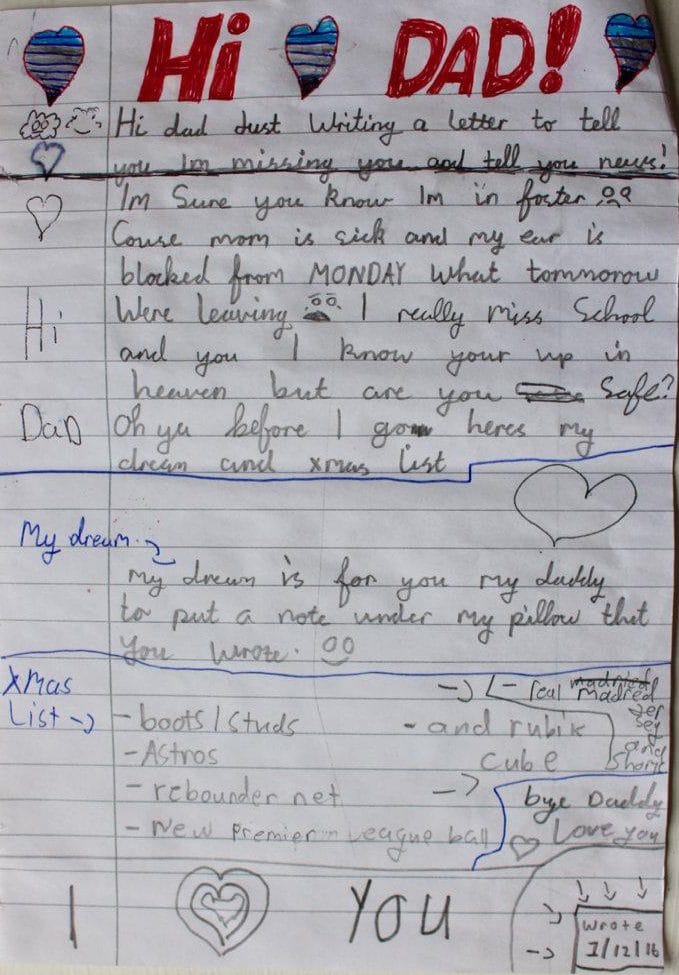 Hi DAD!
Hi dad Just Writing a letter to tell
you Im missing you and tell you news!
Im Sure you know Im in foster
Couse mom is sick and my ear is
blocked from MONDAY What tommorow
Were leaving I really miss School
Hi
and you I know your up in
heaven but are you Safe?
Dad
Oh ya before I go heres my
dream and xmas list
My dream
My dream is for you my daddy
to put a note under my pillow that
you wrote.
Xmas
List
- boots/studs
- Astros
- rebounder net
- New Premier League ball
- real Madred
jersey
and
shorts
- and rubik
cube
bye Daddy
Love you
I YOU
Wrote
1/12/16